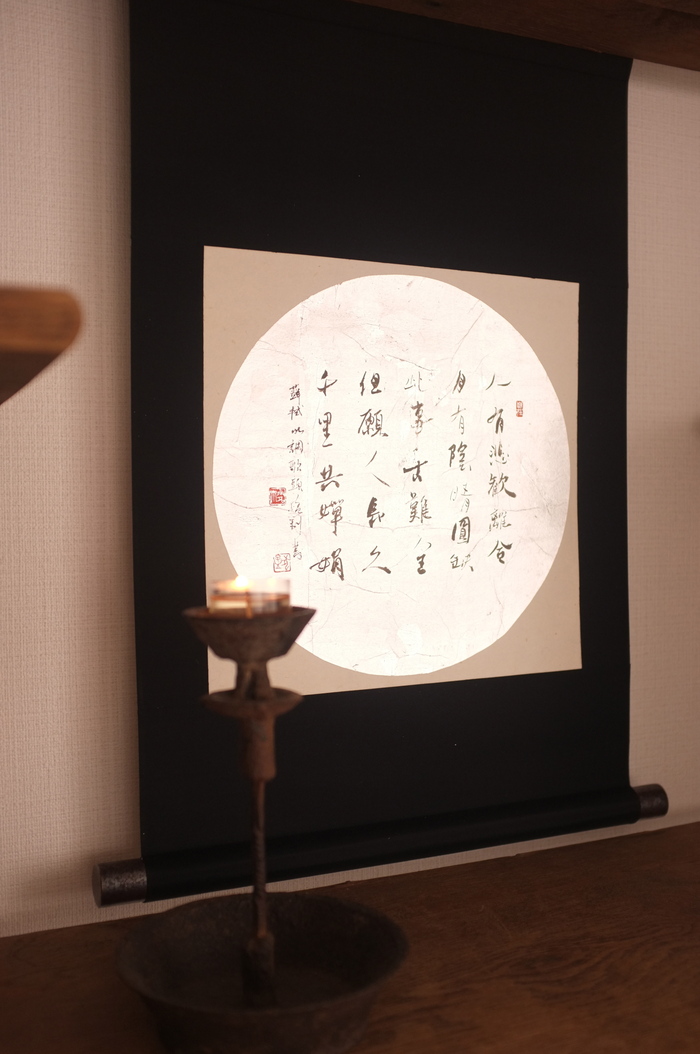 人有悲歡離合
月有陰晴圓缺
此事古難全
但願人長久
千里共嬋娟
蘇軾 水調歌頭